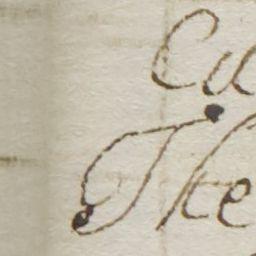 Ca
The